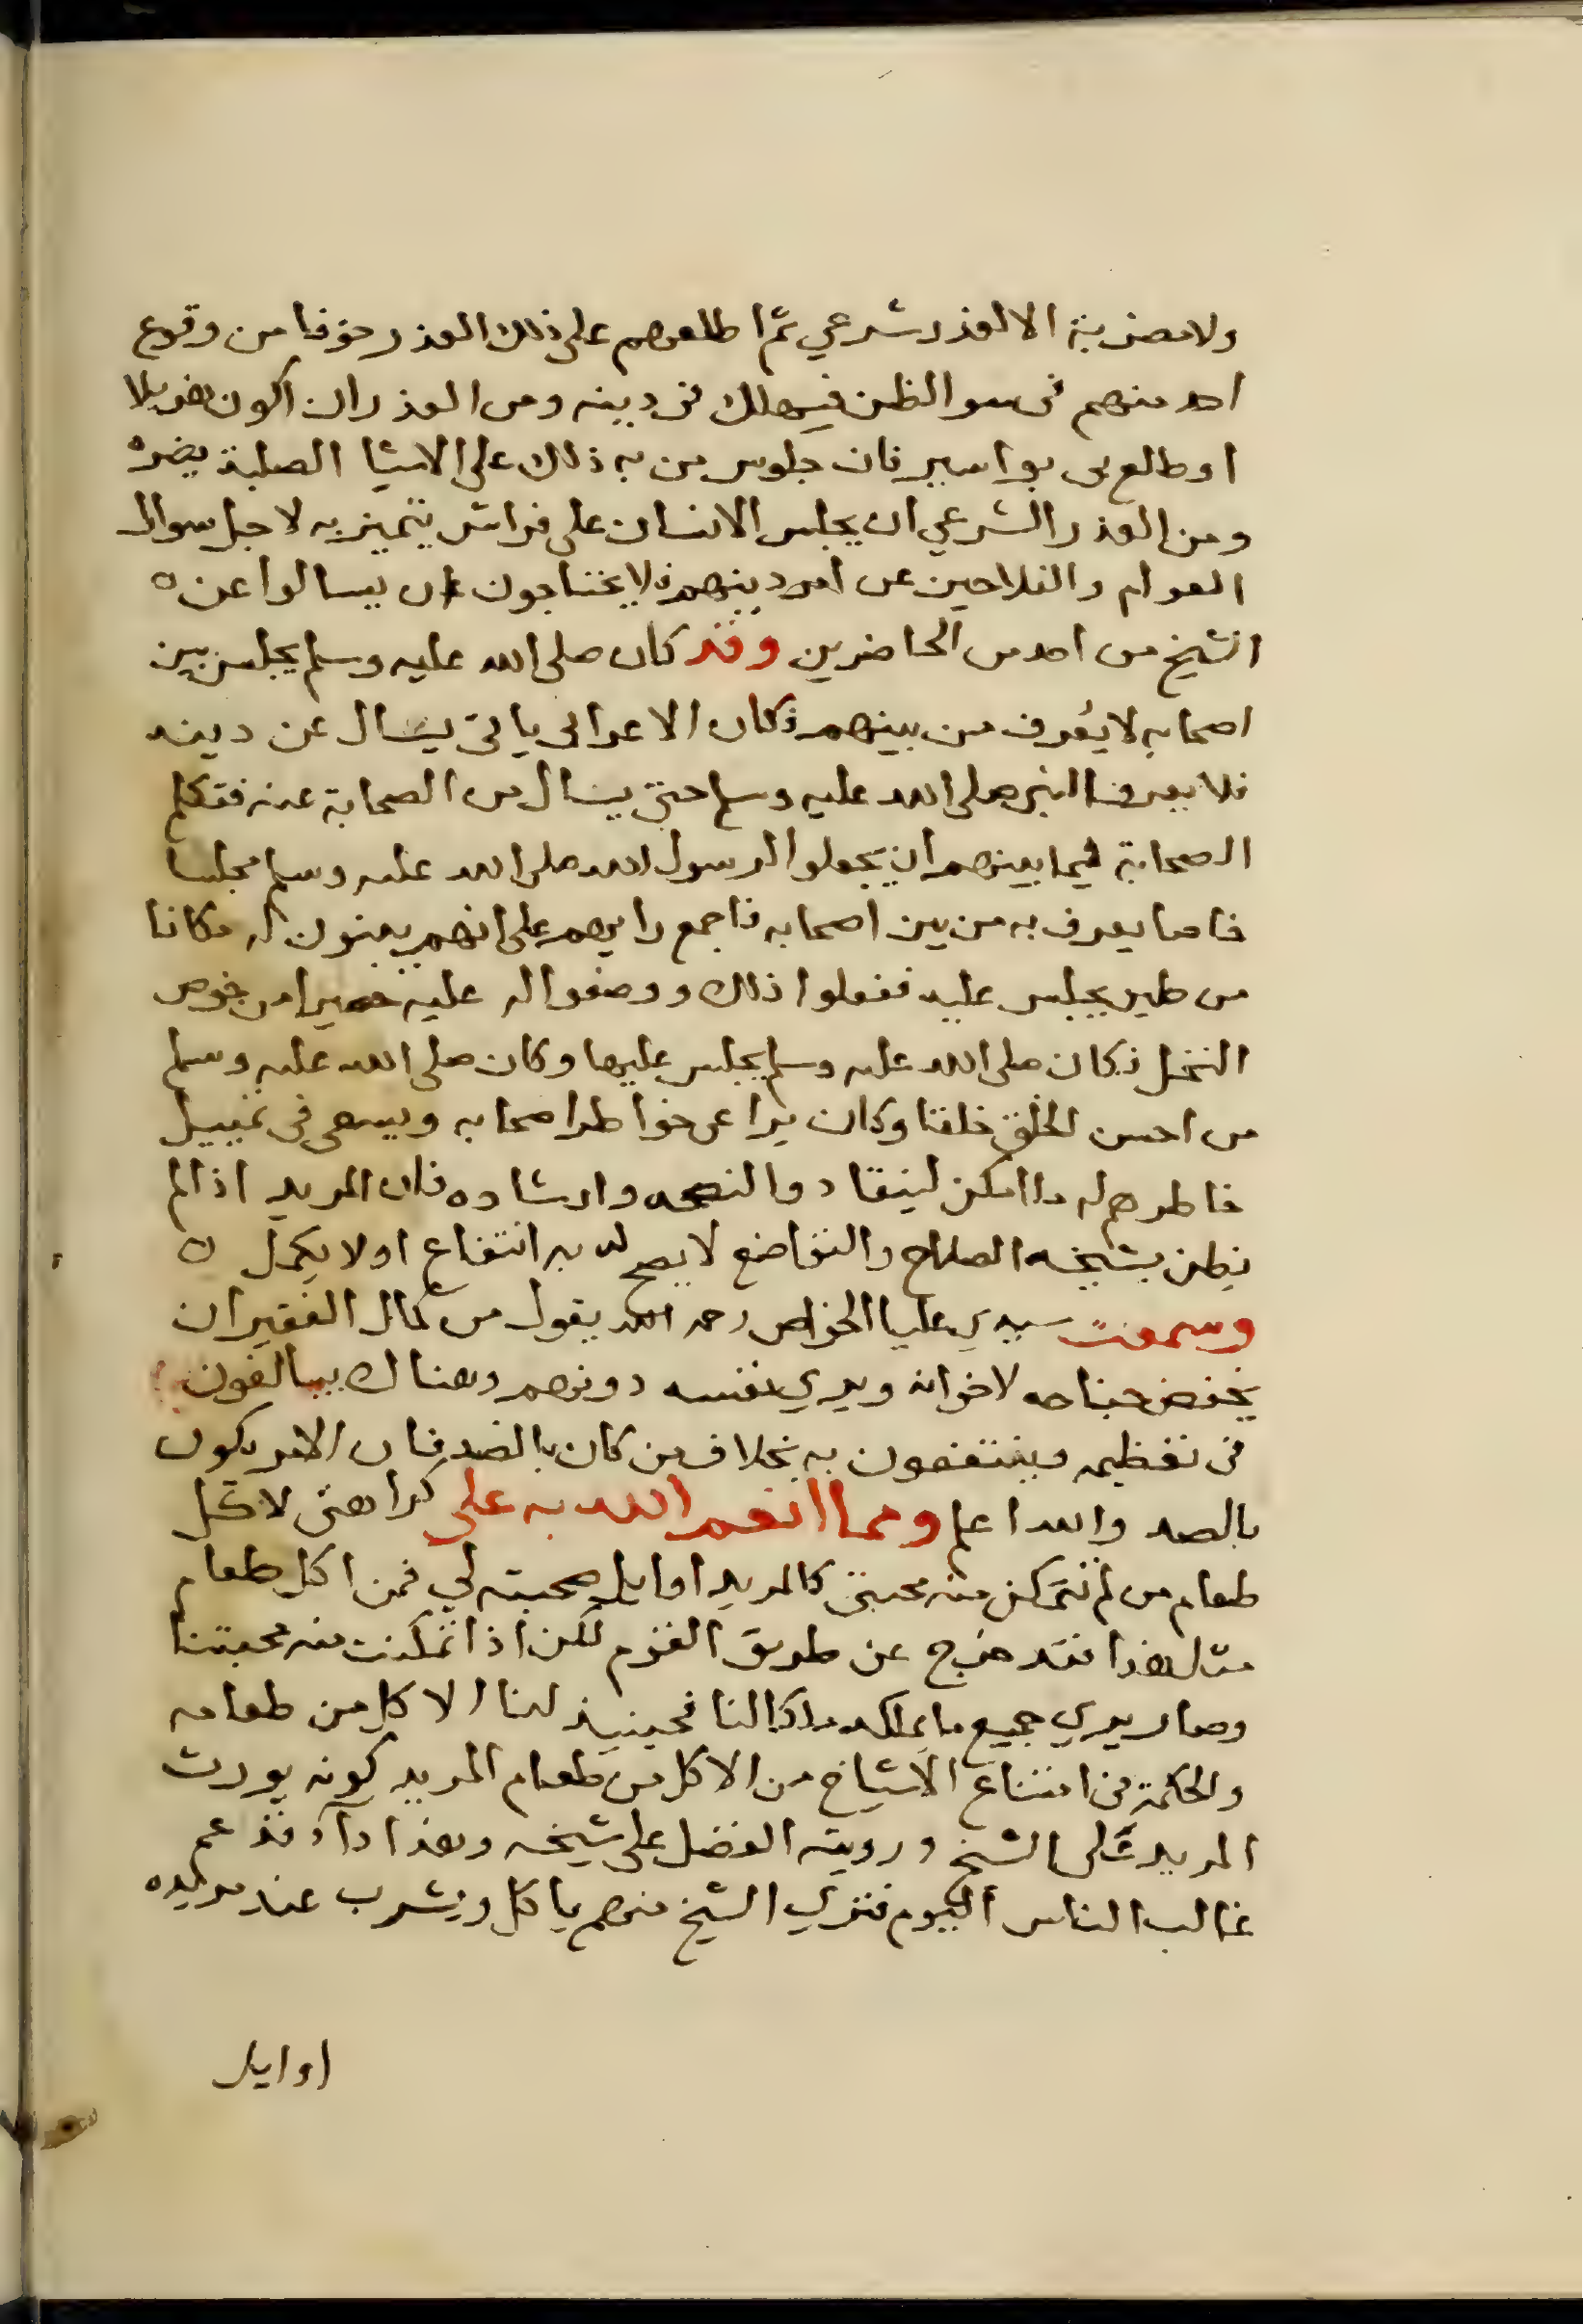 ولا مضربة الا لعذر شرعي ثم اطلعهم على ذلك العذر خوفا من وقوع
احد منهم في سو الظن فيهلك في دينه ومن العذر ان اكون هزيلا
او طالع بي بواسير فان جلوس من به ذلك على الاشيا الصلبة يضره
ومن العذر الشرعي ان يجلس الانسان على فراش يتميز به لاجل سوال
العوام والفلاحين عن امر دينهم فلا يحتاجون ان يسالوا عن ه
الشيخ من احد من الحاضرين وقد كان صلى الله عليه وسلم يجلس بين
اصحابه لا يُعرف من بينهم فكان الاعرابى ياتى يسال عن دينه
فلا يعرف النبي صلى الله عليه وسلم حتى يسال من الصحابة عنه فتكلم
الصحابة فيما بينهم ان يجعلوا لرسول الله صلى الله عليه وسلم مجلسا
خاصا يعرف به من بين اصحابه فاجمع رايهم على انهم يبنون له مكانا
من طين يجلس عليه ففعلوا ذلك ووضعوا له عليه حصيرا من خوص
النخل فكان صلى الله عليه وسلم يجلس عليها وكان صلى الله عليه وسلم
من احسن الخلق خلقا وكان يراعي خواطر اصحابه ويسعى في تمييل
خاطرهم له ما امكن لينقادوا لنصحه وارشاده فان المريد اذا لم
يظن بشيخه الصلاح والتواضع لا يصح له به انتفاع اولا يكمل ه
وسمعت سيدي عليا الخواص رحمه الله يقول من كمال الفقير ان
يخفض جناحه لاخوانه ويرى نفسه دونهم وهناك يبالغون
في تعظيمه وينتفعون به بخلاف من كان بالضد فان الامر يكون
بالضد والله اعلم ومما انعم الله به على كراهتي لاكل
طعام من لم تتمكن منه محبتى كالمريد اوايل صحبته لي فمن اكل طعام
مثل هذا فقد خرج عن طريق القوم لكن اذا تمكنت منه محبتنا
وصار يرى جميع ما يملكه ملكا لنا فحينيذ لنا الاكل من طعامه
والحكمة في امتناع الاشياخ من الاكل من طعام المريد كونه يورث
المريد على الشيخ ورويته الفضل على شيخه وهذا داء قد عم
غالب الناس اليوم فترى الشيخ منهم ياكل ويشرب عند مريده
اوايل